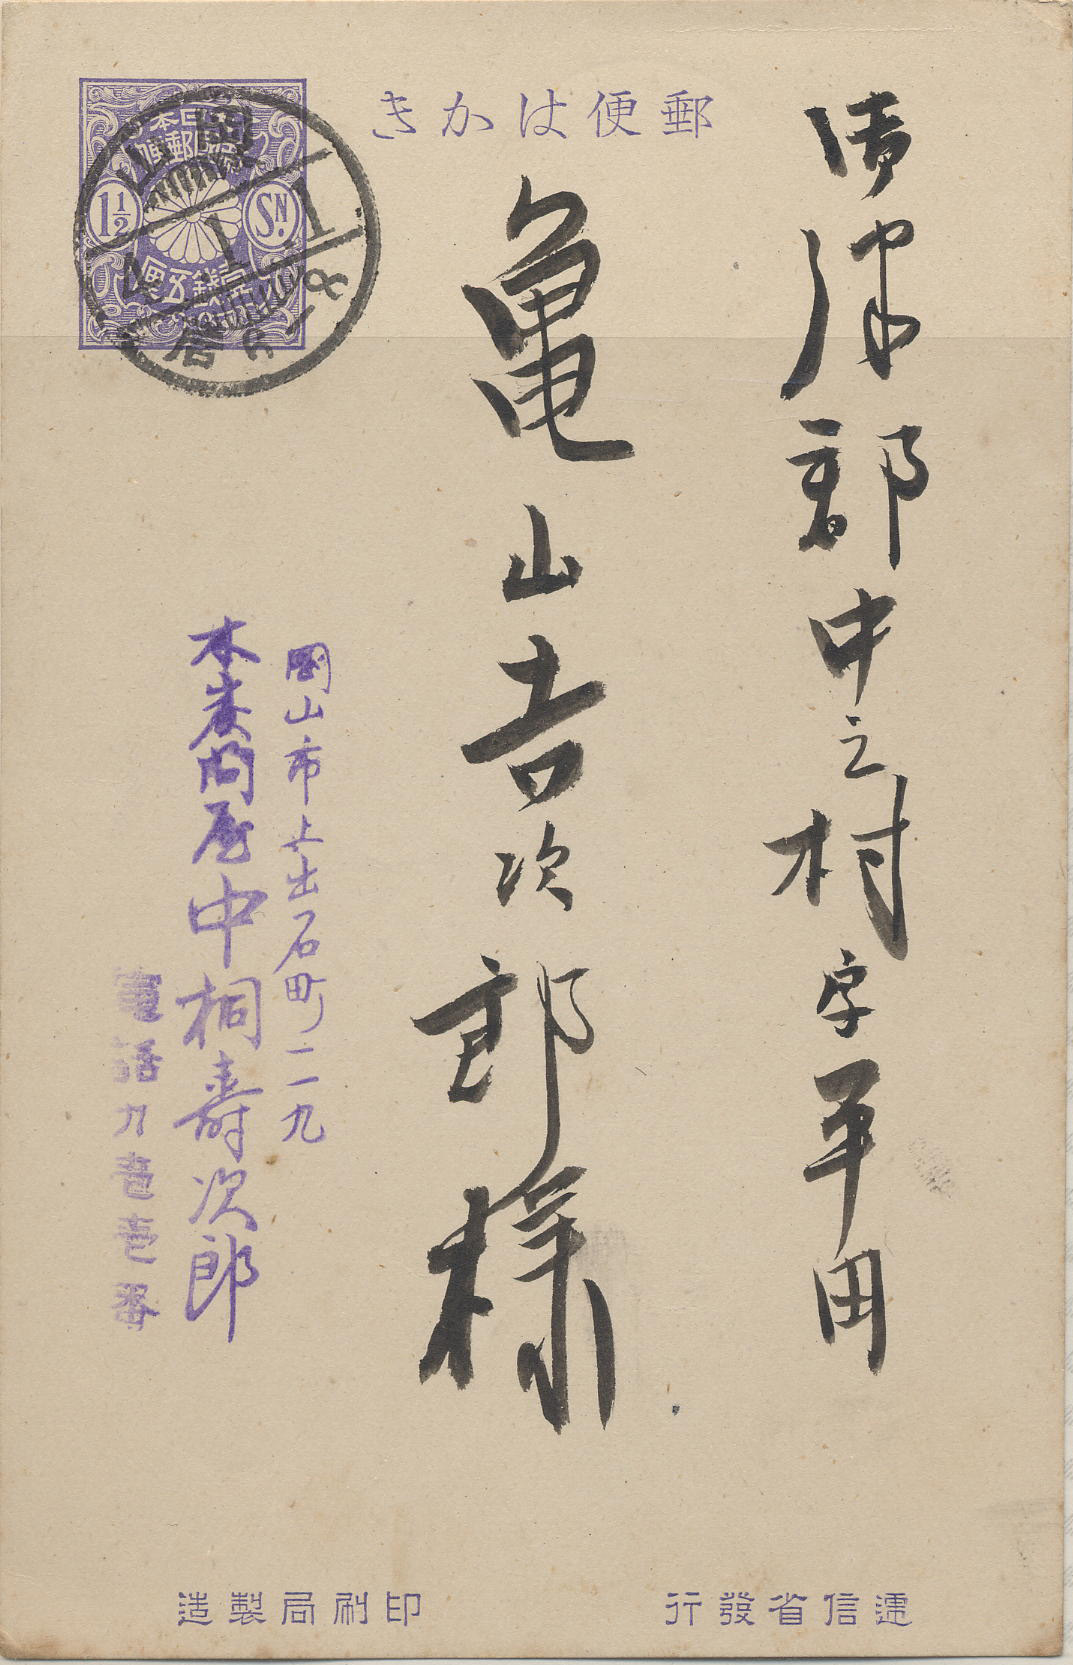 郵便はかき
日本
郵便
1½
SN.
壹錢五厘
岡山
1
8
御津郡中之村字平田
亀山吉次郎様
岡山市上出石町二一九
木炭問屋中桐壽次郎
電話九壱壱番
逓信省發行
印刷局製造